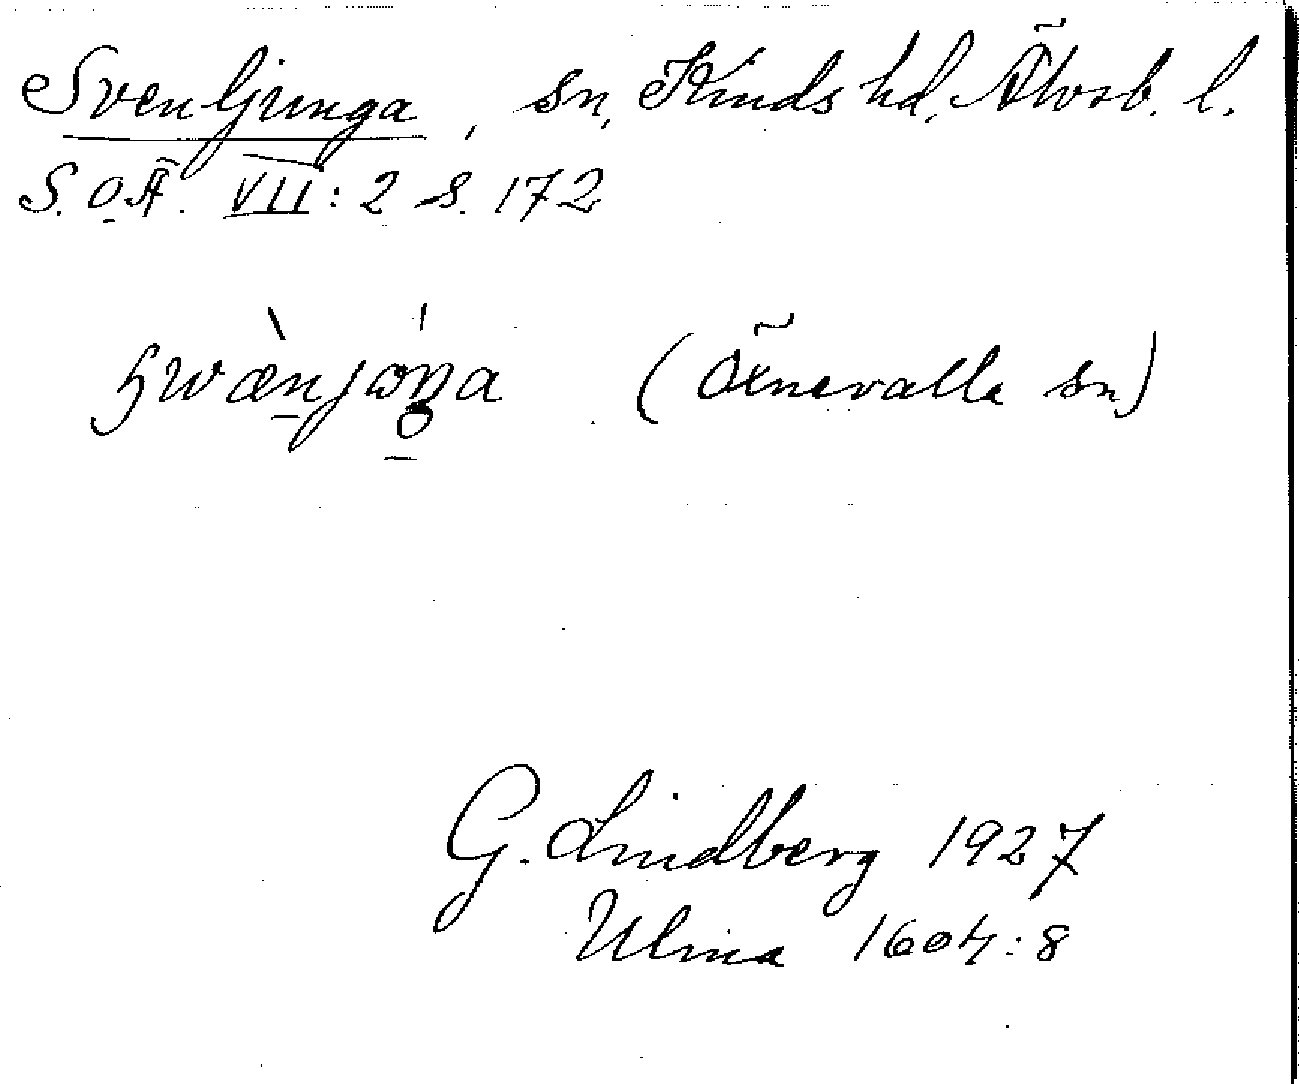 Svenljunga, sn, Kinds hd. Älvsb. l.
S.O.Ä. VII:2 s. 172
(Öxnevalla sn)
G. Lindberg 1927
Ulma 1604:8